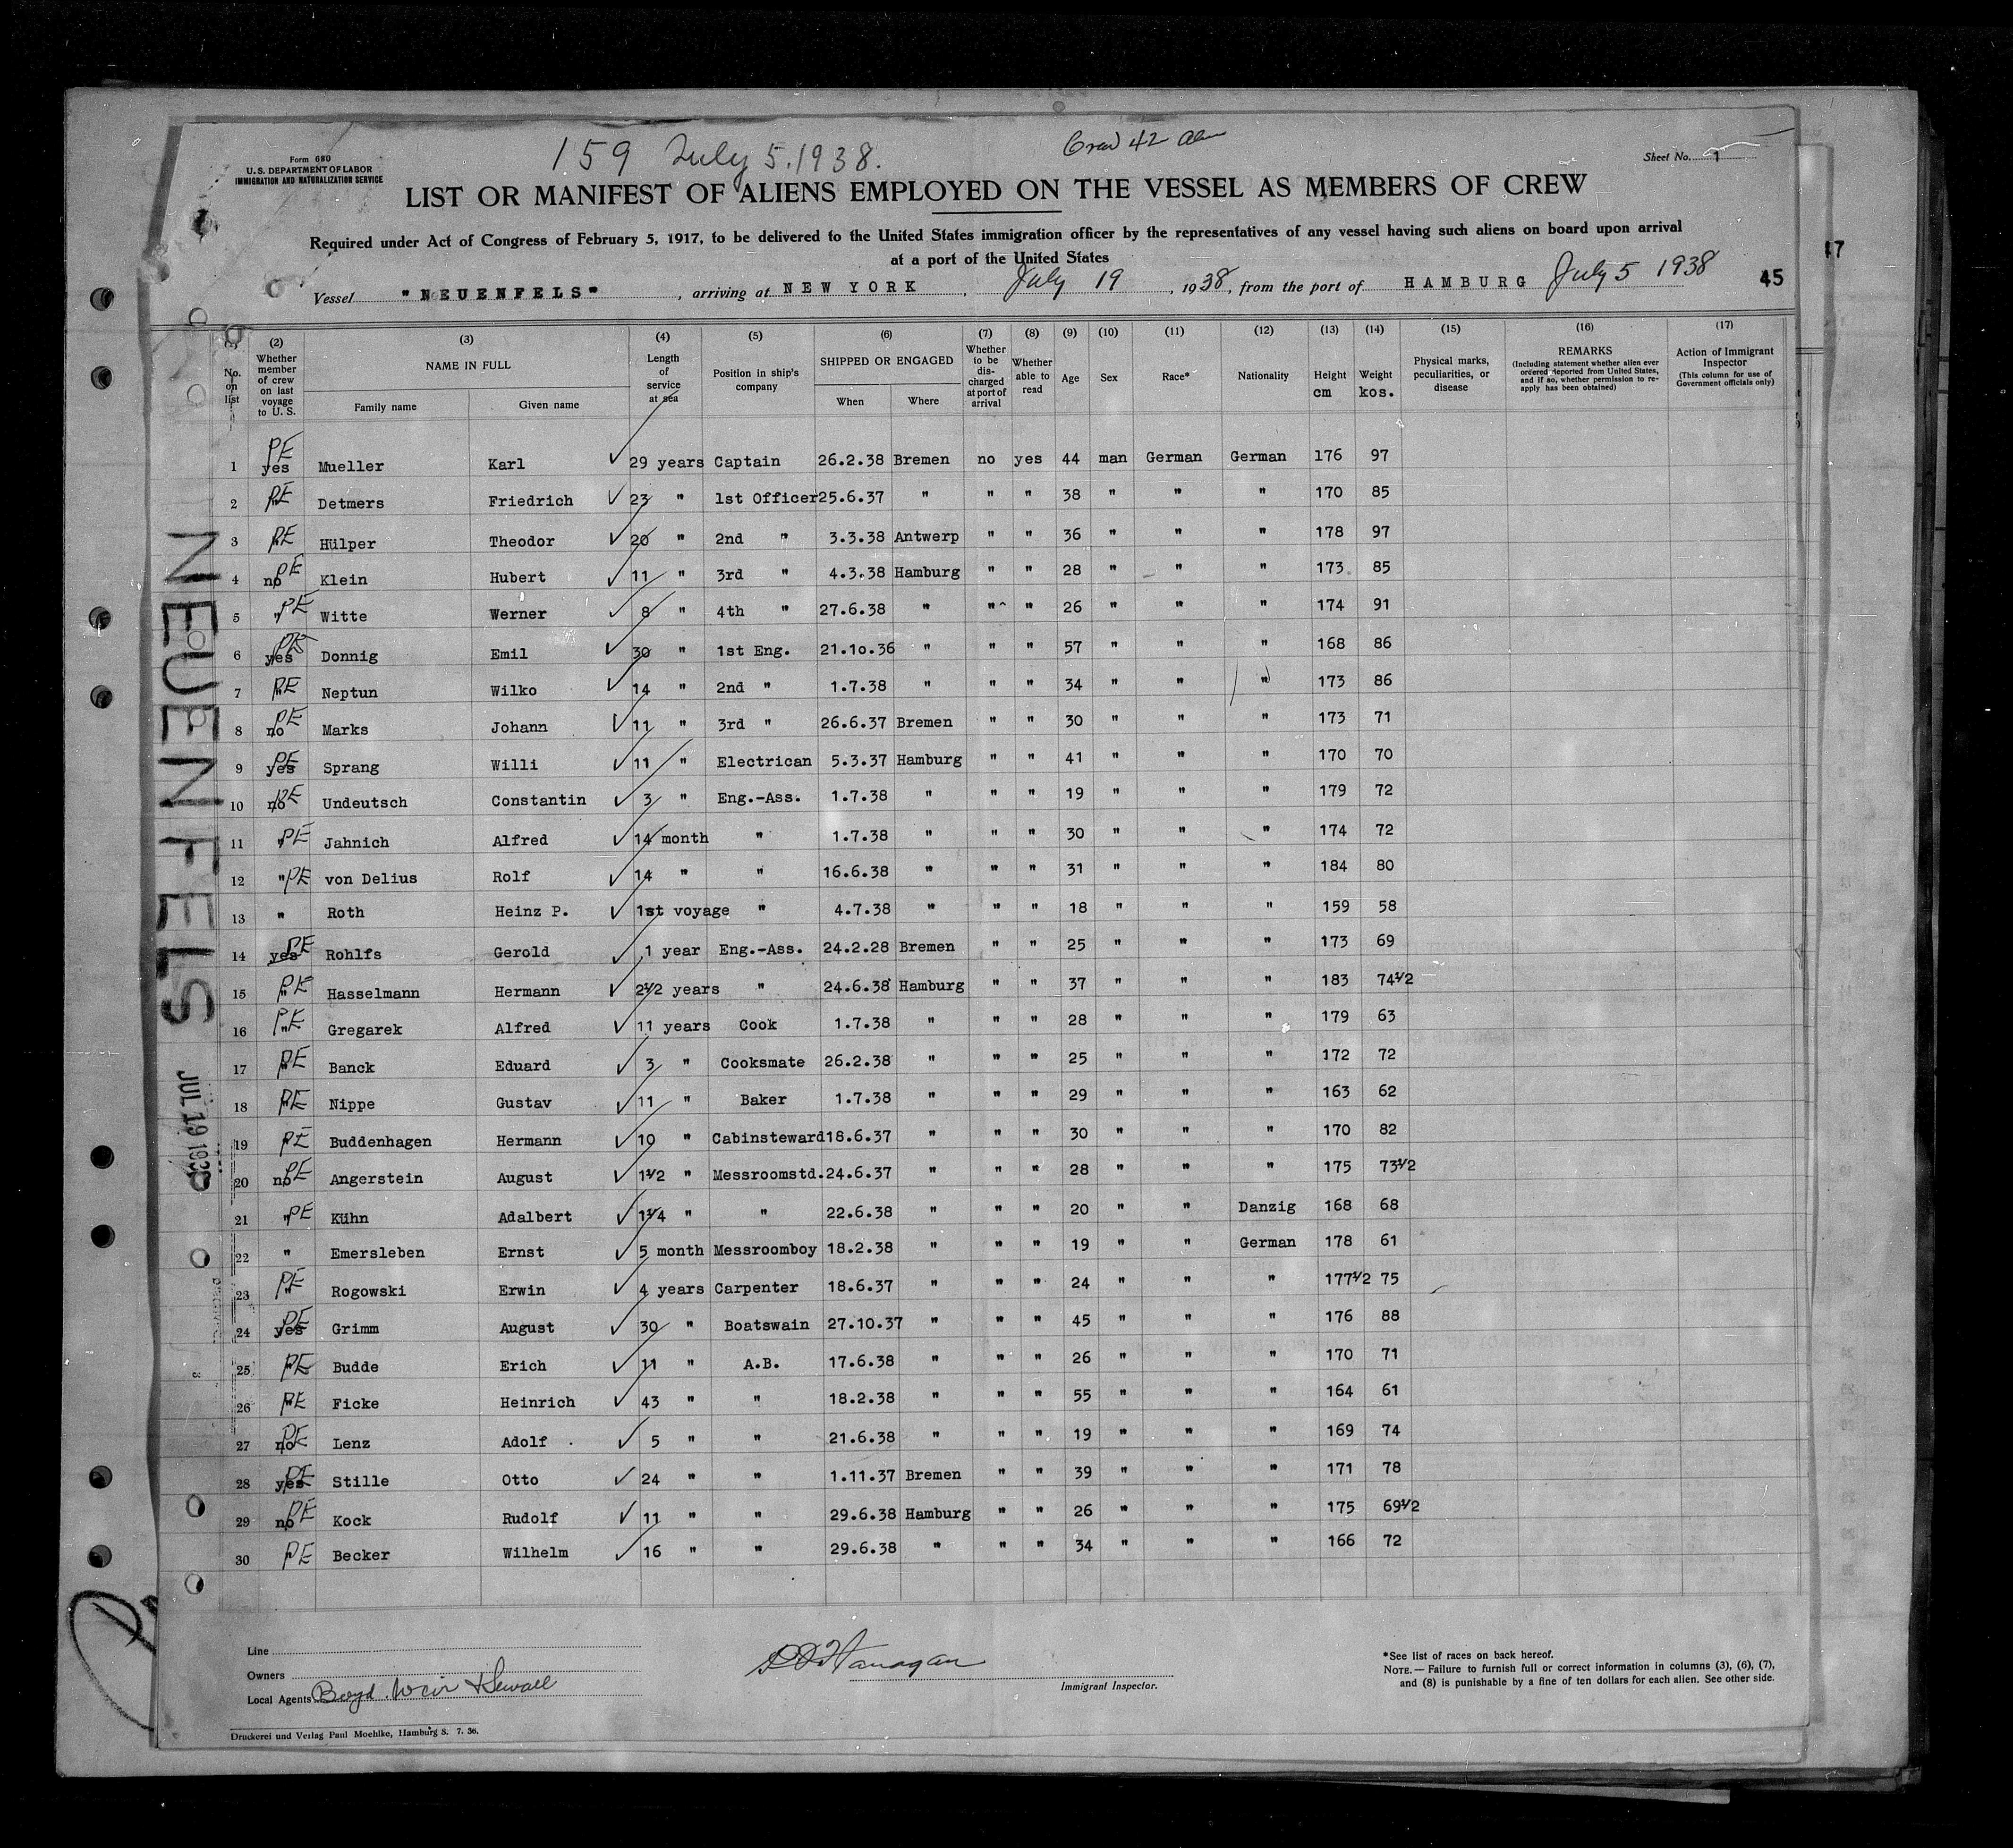 159 July 5.1938.
Crew 42
Form 680
U. S. DEPARTMENT OF LABOR
IMMIGRATION AND NATURALIZATION SERVICE
Sheet No. 1
LIST OR MANIFEST OF ALIENS EMPLOYED ON THE VESSEL AS MEMBERS OF CREW
Required under Act of Congress of February 5, 1917, to be delivered to the United States immigration officer by the representatives of any vessel having such aliens on board upon arrival
at a port of the United States
Vessel "NEUENFELS", arriving at NEW YORK, July 19, 1938, from the port of HAMBURG July 5 1938
45
47
(2) (3) (4) (5) (6) (7) (8) (9) (10) (11) (12) (13) (14) (15) (16) (17)
No. on list
Whether member of crew on last voyage to U. S.
NAME IN FULL
Family name Given name
Length of service at sea
Position in ship's company
SHIPPED OR ENGAGED
When Where
Whether to be discharged at port of arrival
Whether able to read
Age
Sex
Race*
Nationality
Height cm
Weight kos.
Physical marks, peculiarities, or disease
REMARKS
(Including statement whether alien ever ordered deported from United States, and if so, whether permission to reapply has been obtained)
Action of Immigrant Inspector
(This column for use of Government officials only)
1 PE yes Mueller Karl ✓ 29 years Captain 26.2.38 Bremen no yes 44 man German German 176 97
2 PE " Detmers Friedrich ✓ 23 " 1st Officer 25.6.37 " " " 38 " " " 170 85
3 PE " Hülper Theodor ✓ 20 " 2nd " 3.3.38 Antwerp " " 36 " " " 178 97
4 PE no Klein Hubert ✓ 11 " 3rd " 4.3.38 Hamburg " " 28 " " " 173 85
5 PE " Witte Werner ✓ 8 " 4th " 27.6.38 " " " 26 " " " 174 91
6 PE yes Donnig Emil ✓ 30 " 1st Eng. 21.10.36 " " " 57 " " " 168 86
7 PE " Neptun Wilko ✓ 14 " 2nd " 1.7.38 " " " 34 " " " 173 86
8 PE no Marks Johann ✓ 11 " 3rd " 26.6.37 Bremen " " 30 " " " 173 71
9 PE yes Sprang Willi ✓ 11 " Electrican 5.3.37 Hamburg " " 41 " " " 170 70
10 PE no Undeutsch Constantin ✓ 3 " Eng.-Ass. 1.7.38 " " " 19 " " " 179 72
11 PE " Jahnich Alfred ✓ 14 month " 1.7.38 " " " 30 " " " 174 72
12 " PE von Delius Rolf ✓ 14 " " 16.6.38 " " " 31 " " " 184 80
13 " Roth Heinz P. ✓ 1st voyage " 4.7.38 " " " 18 " " " 159 58
14 yes PE Rohlfs Gerold ✓ 1 year Eng.-Ass. 24.2.28 Bremen " " 25 " " " 173 69
15 PE " Hasselmann Hermann ✓ 2½ years " 24.6.38 Hamburg " " 37 " " " 183 74½
16 PE " Gregarek Alfred ✓ 11 years Cook 1.7.38 " " " 28 " " " 179 63
17 PE " Banck Eduard ✓ 3 " Cooksmate 26.2.38 " " " 25 " " " 172 72
18 PE " Nippe Gustav ✓ 11 " Baker 1.7.38 " " " 29 " " " 163 62
19 PE " Buddenhagen Hermann ✓ 10 " Cabinsteward 18.6.37 " " " 30 " " " 170 82
20 PE no Angerstein August ✓ 1½ " Messroomstd. 24.6.37 " " " 28 " " " 175 73½
21 PE " Kühn Adalbert ✓ 1¼ " " 22.6.38 " " " 20 " " Danzig 168 68
22 " Emersleben Ernst ✓ 5 month Messroomboy 18.2.38 " " " 19 " " German 178 61
23 PE " Rogowski Erwin ✓ 4 years Carpenter 18.6.37 " " " 24 " " " 177½ 75
24 PE yes Grimm August ✓ 30 " Boatswain 27.10.37 " " " 45 " " " 176 88
25 PE " Budde Erich ✓ 11 " A.B. 17.6.38 " " " 26 " " " 170 71
26 PE " Ficke Heinrich ✓ 43 " " 18.2.38 " " " 55 " " " 164 61
27 PE no Lenz Adolf ✓ 5 " " 21.6.38 " " " 19 " " " 169 74
28 PE yes Stille Otto ✓ 24 " " 1.11.37 Bremen " " 39 " " " 171 78
29 PE no Kock Rudolf ✓ 11 " " 29.6.38 Hamburg " " 26 " " " 175 69½
30 PE " Becker Wilhelm ✓ 16 " " 29.6.38 " " " 34 " " " 166 72
NEUENFELS
JUL 19 1938
Line
Owners
Local Agents Boyd Weir & Sewall
Immigrant Inspector.
*See list of races on back hereof.
NOTE.— Failure to furnish full or correct information in columns (3), (6), (7),
and (8) is punishable by a fine of ten dollars for each alien. See other side.
Druckerei und Verlag Paul Moehlke, Hamburg 8. 7. 36.